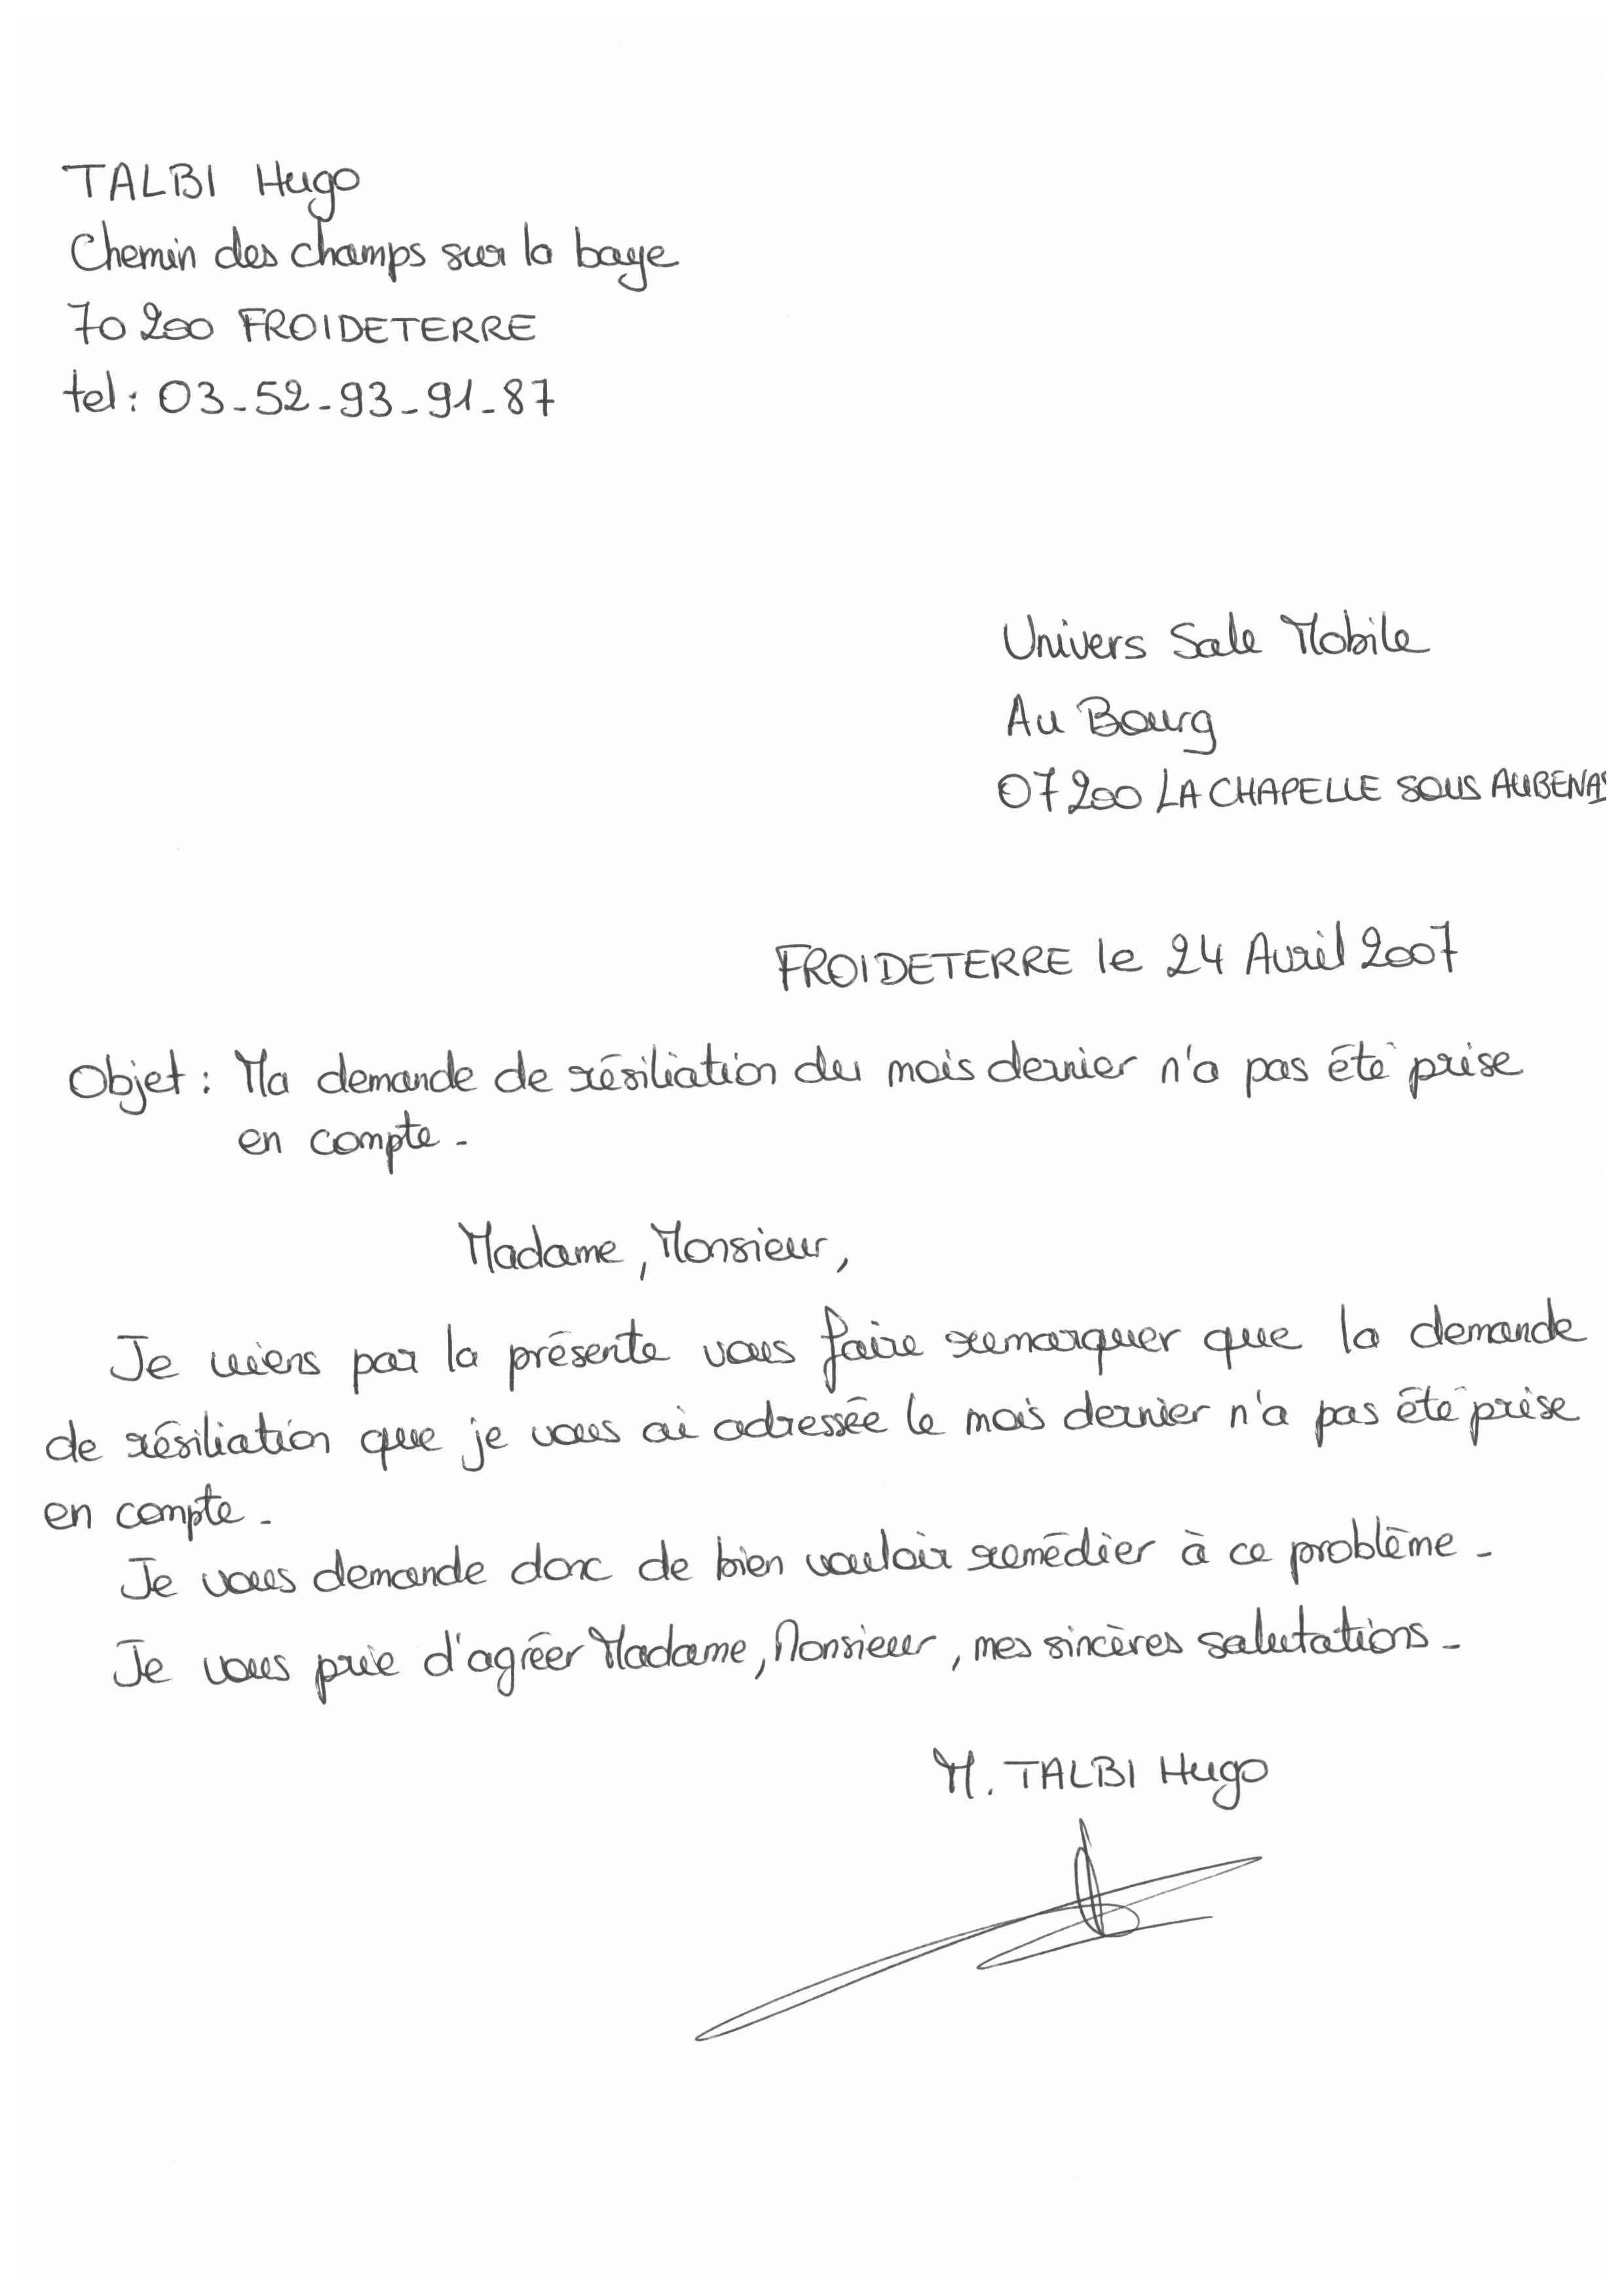 TALBI Hugo
Chemin des champs sur la baye
70 200 FROIDETERRE
tel : 03-52-93-91-87
Univers Sale Mobile
Au Bourg
07200 LA CHAPELLE SOUS AUBENAS
FROIDETERRE le 24 Avril 2007
Objet : Ma demande de résiliation du mois dernier n'a pas été prise
en compte.
Madame, Monsieur,
Je viens par la présente vous faire remarquer que la demande
de résiliation que je vous ai adressée le mois dernier n'a pas été prise
en compte.
Je vous demande donc de bien vouloir remédier à ce problème.
Je vous prie d'agréer Madame, Monsieur, mes sincères salutations.
M. TALBI Hugo